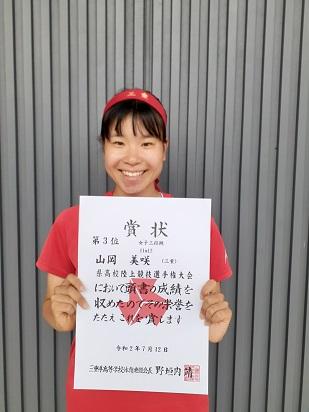 三重
賞状
第3位 女子三段跳
11m12
山岡 美咲 (三重)
県高校陸上競技選手権大会
において頭書の成績を
収めたのでその栄誉を
たたえこれを賞します
令和2年7月12日
三重県高等学校体育連盟会長 野垣内 靖